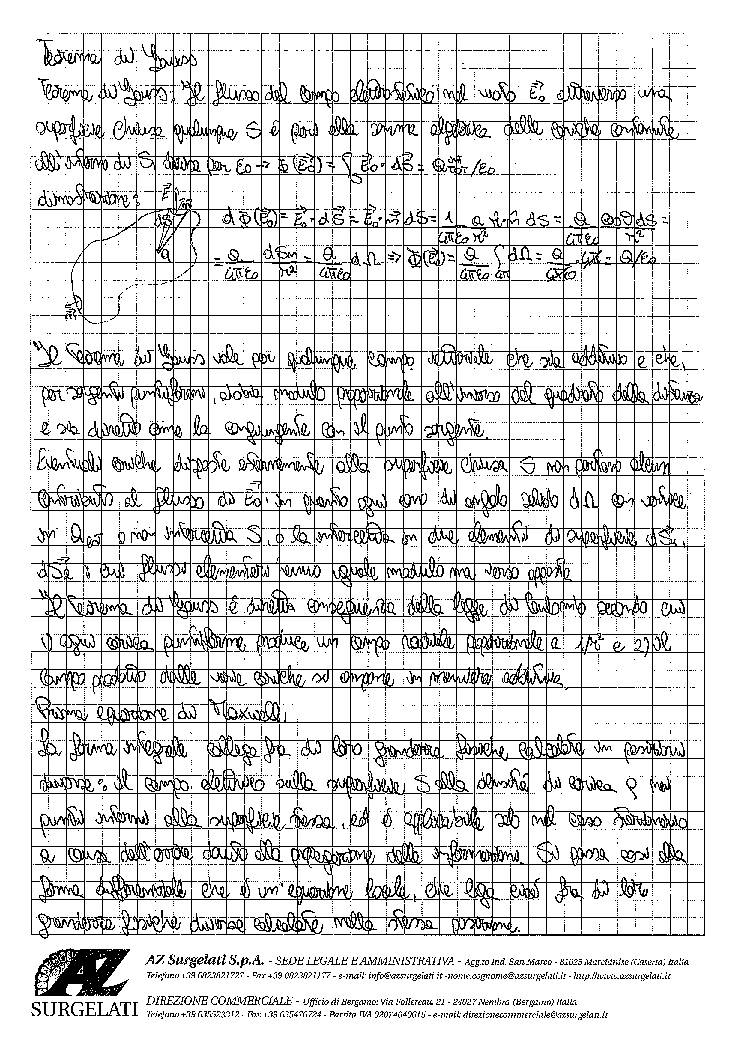 Teorema di Gauss
Teorema di Gauss: Il flusso del campo elettrostatico nel vuoto E⃗₀ attraverso una
superficie chiusa qualunque S è pari alla somma algebrica delle cariche contenute
all'interno di S, divisa per ε₀ → Φ(E⃗₀) = ∫s E⃗₀ · dS⃗ = Q int tot/ε₀
dimostrazione:
dΦ(E⃗₀) = E⃗₀ · dS⃗ = E⃗₀ · n̂ dS = 1/4πε₀ Q/r² r̂·n̂ dS = Q/4πε₀ cosϑ dS/r² =
= Q/4πε₀ dSn/r² = Q/4πε₀ dΩ ⇒ Φ(E⃗₀) = Q/4πε₀ ∫4π dΩ = Q/4πε₀ · 4π = Q/ε₀
Q
"Il Teorema di Gauss vale per qualunque campo vettoriale che sia additivo e che,
per sorgenti puntiformi, abbia modulo proporzionale all'inverso del quadrato della distanza
e sia diretto come la congiungente con il punto sorgente.
Eventuali cariche disposte esternamente alla superficie chiusa S non portano alcun
contributo al flusso di E⃗₀ in quanto ogni cono di angolo solido dΩ con vertice
in Q est o non intercetta S, o la intercetta in due elementi di superficie dS⃗₁,
dS⃗₂ i cui flussi elementari hanno uguale modulo ma verso opposto
"Il Teorema di Gauss è diretta conseguenza della legge di Coulomb secondo cui
1) ogni carica puntiforme produce un campo radiale proporzionale a 1/r² e 2) il
campo prodotto dalle varie cariche si compone in maniera additiva.
Prima equazione di Maxwell:
La forma integrale collega fra di loro grandezze fisiche calcolate in posizioni
diverse: il campo elettrico sulla superficie S alla densità di carica ρ nei
punti interni alla superficie stessa, ed è applicabile solo nel caso stazionario
a causa dell'errore dovuto alla propagazione delle informazioni. Si passa così alla
forma differenziale che è un'equazione locale, che lega cioè fra di loro
grandezze fisiche diverse calcolate nella stessa posizione.
AZ
SURGELATI
AZ Surgelati S.p.A. - SEDE LEGALE E AMMINISTRATIVA - Agg.to Ind. San Marco - 81025 Marcianise (Caserta) Italia
Telefono +39 0823821727 - Fax +39 0823821177 - e-mail: info@azsurgelati.it - nome.cognome@azsurgelati.it - http://www.azsurgelati.it
DIREZIONE COMMERCIALE - Ufficio di Bergamo: Via Follereau, 21 - 24027 Nembro (Bergamo) Italia